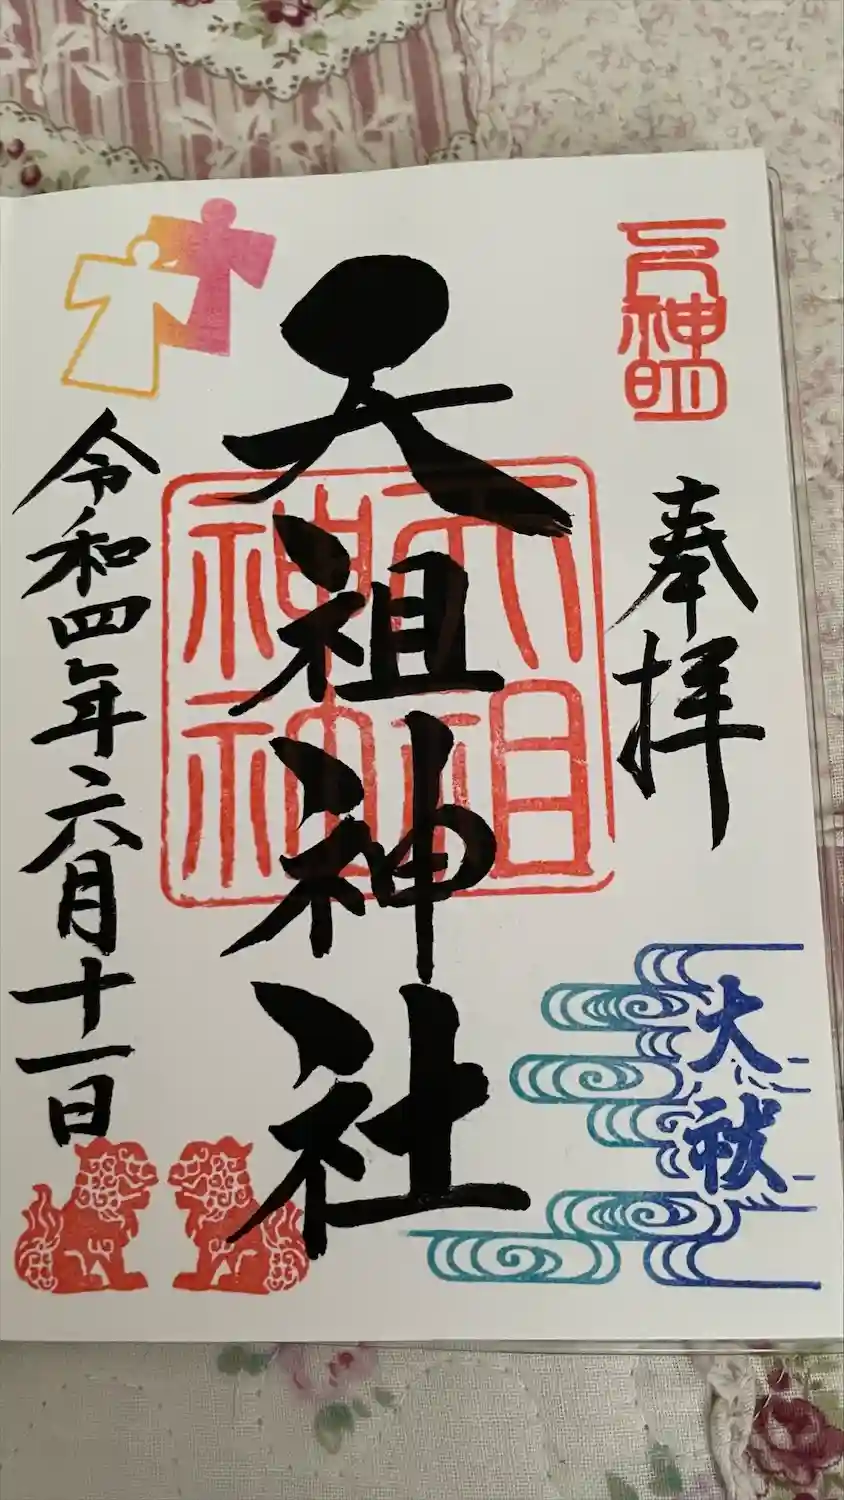 神明
奉拝
大祓
天祖神社
天祖
神
令和四年六月十一日